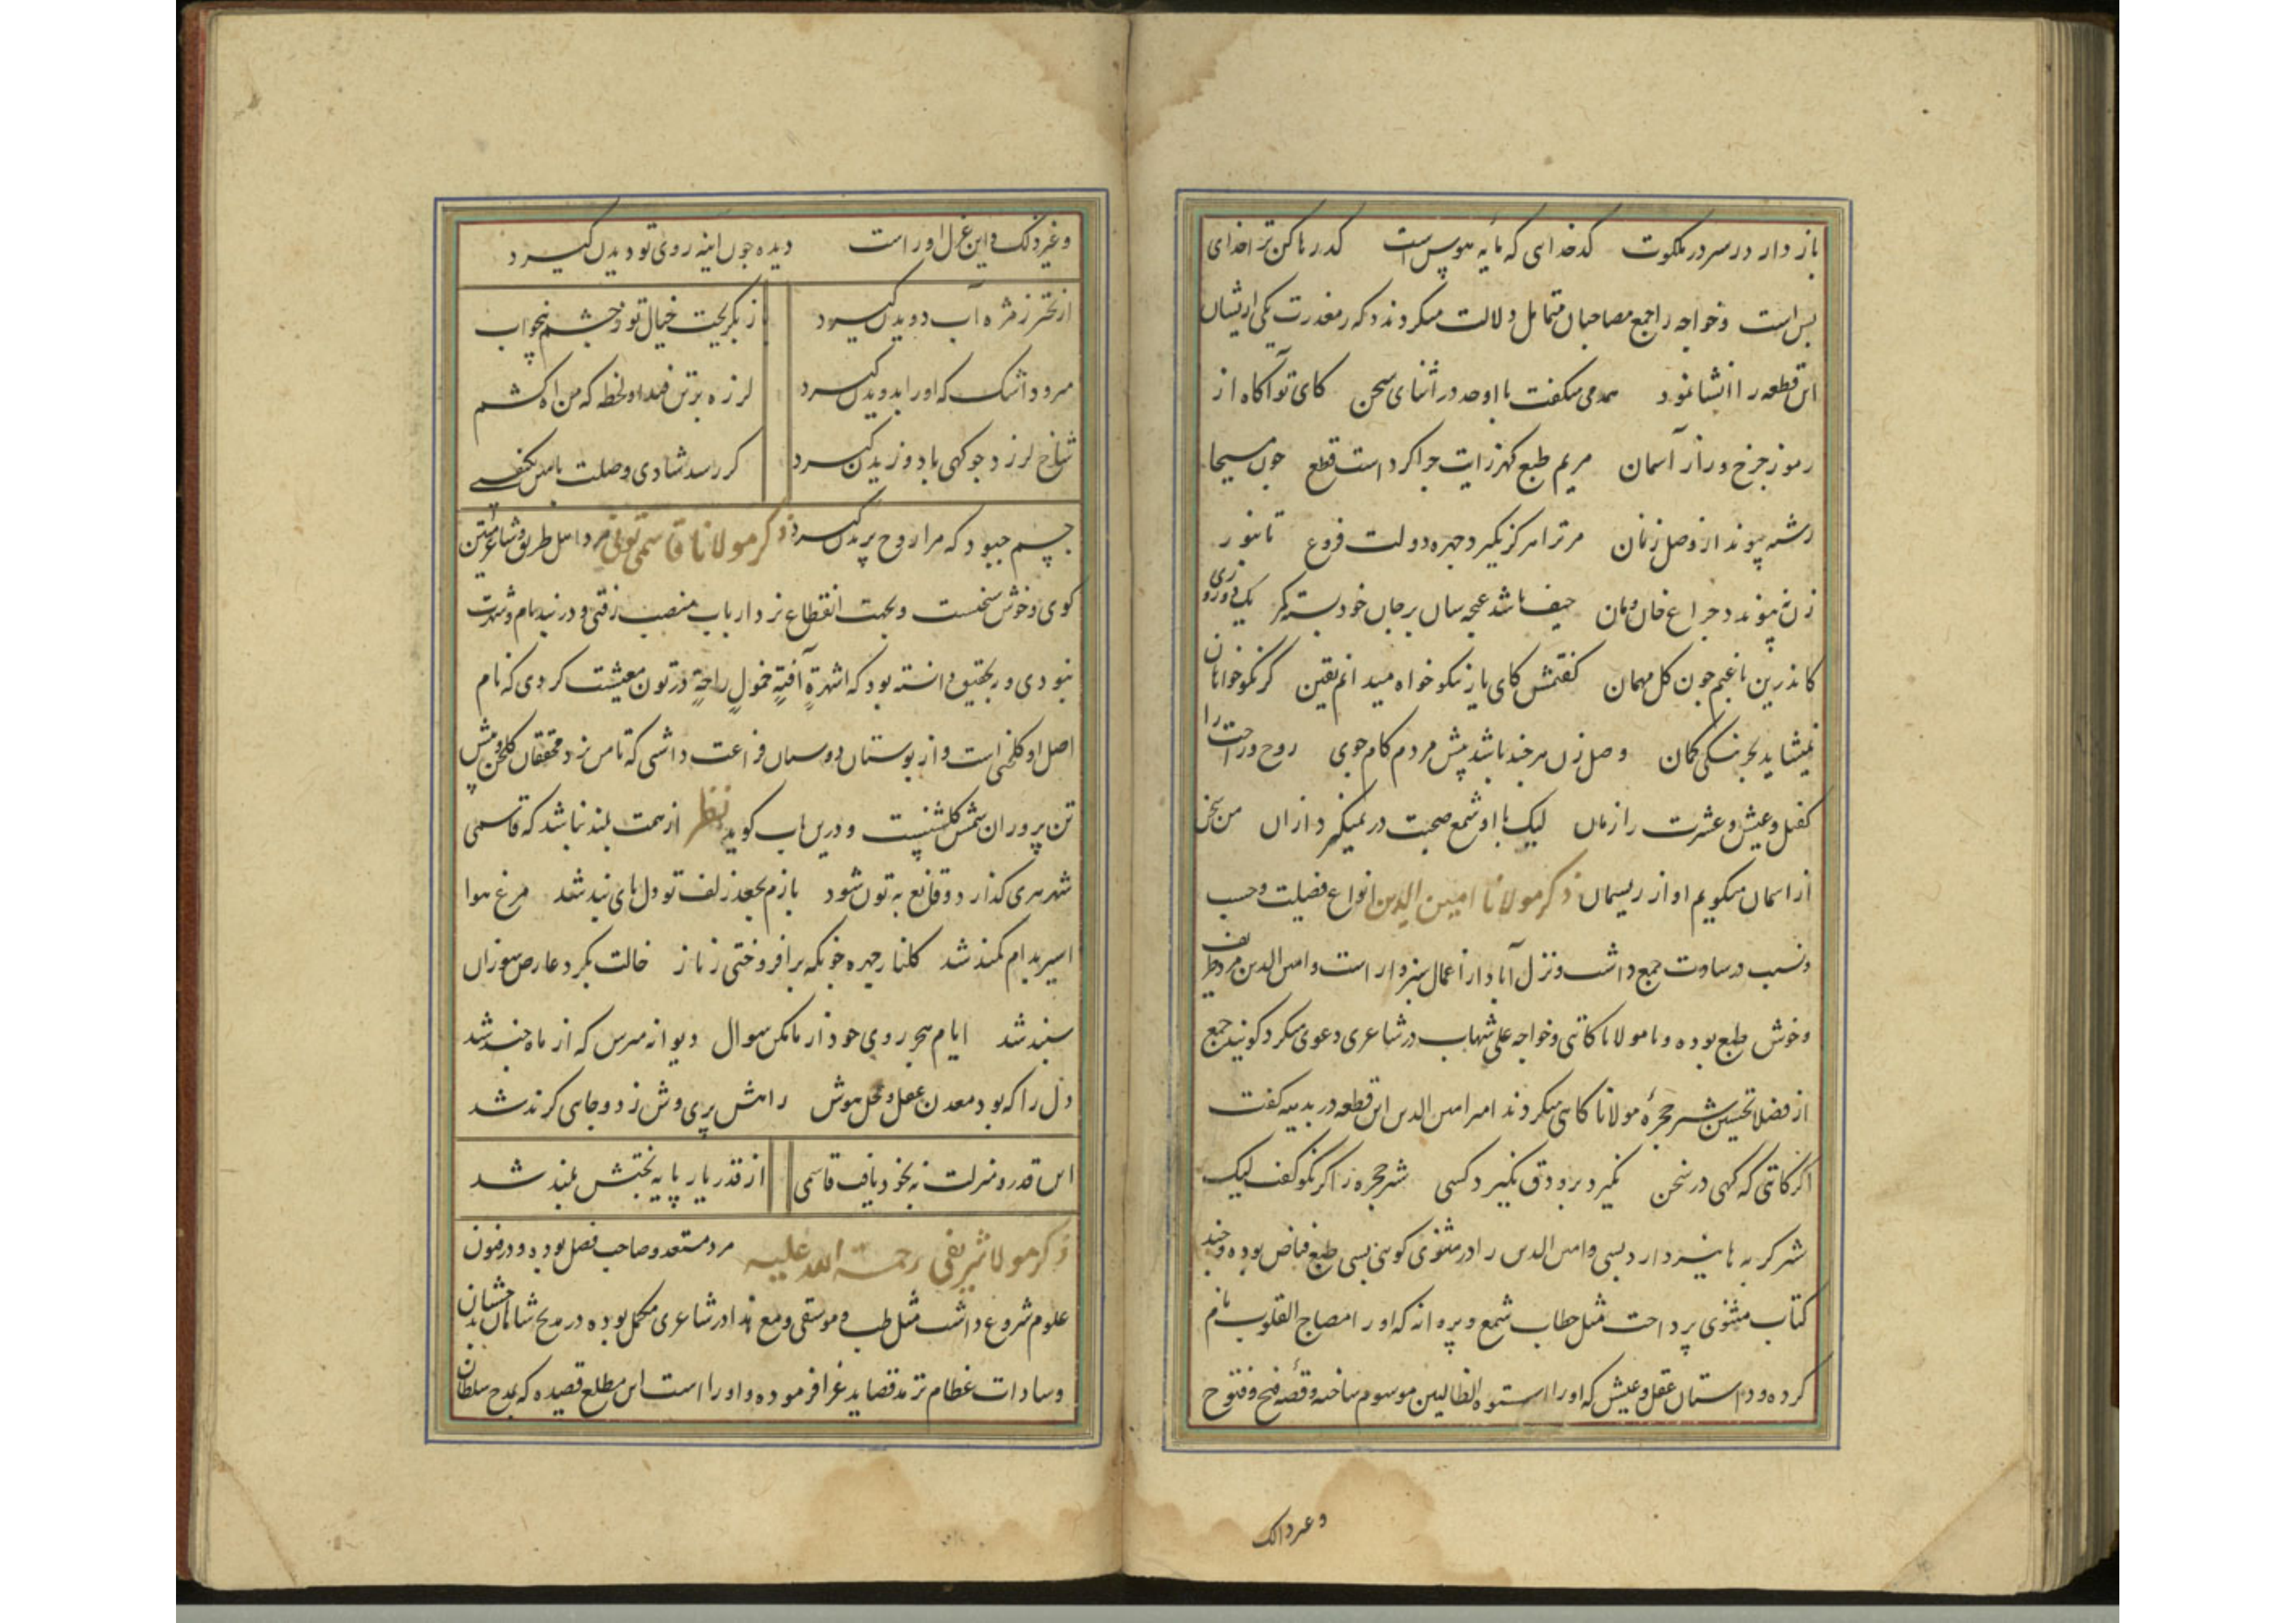 باز دار در سر در ملکوت کدخدای که مایه هوس است کد رها کن ترا خدای
بس است و خواجه را جمع مصاحبان متاهل دلالت میکردند که در معذرت یکی ازیشان
این قطعه را انشا نمود همدمی میگفت با اوحد در اثنای سخن کای تو آگاه از
رموز چرخ و راز آسمان مریم طبع گهرزایت چرا کرد است قطع چون مسیحا
رشته پیوند از وصل زنان مر ترا هرگز نگیرد چهره دولت فروغ تا نور
زن نه پیوندد چراغ خان و مان حیف باشد غنچه سان بر جان خود بستن مگر یک دو روزی
کاندرین باغیم چون گل میهمان گفتمش کای یار نیکو خواه میدانم یقین کز نکوخواهان
نمیشاید بجز نیکی گمان وصل زن هرچند باشد پیش مردم کام جوی روح و راحت را
کفیل و عیش و عشرت را زمان لیک با او شمع صحبت در نمیگیرد ازان من سخن
از اسمان میگویم او از ریسمان ذکر مولانا امین الدین انواع فضیلت و حسب
و نسب و سادت جمع داشت و نزل آباد از اعمال سبزوار است و امین الدین مرد ظریف
و خوش طبع بوده و با مولانا کاتبی و خواجه علی شهاب در شاعری دعوی میکرد گویند جمع
از فضلا تحسین شتر حجره مولانا کاتبی میکردند امیر امین الدین این قطعه در بدیهه گفت
اگر کاتبی گه گهی در سخن نگیرد برو دق نگیرد کسی شتر حجره را گر نکو گفت لیک
شتر گربه ها نیز دارد بسی و امین الدین را در مثنوی گویی بسی طبع فیاض بوده و چند
کتاب مثنوی پرداخت مثل خطاب شمع و پروانه که او را مصباح القلوب نام
کرده و داستان عقل و عیش که او را سلوة الطالبین موسوم ساخته و قصه فتح و فتوح
و غیر ذالک
و غیر ذلک و این غزل او راست دیده چون اینه روی تو دیدن گیرد
از تحیر ز مژه آب دویدن گیرد باز بگریخت خیال تو ز چشمم بخواب
مرو و اشک که او را بدویدن گیرد لرزه بر تن فتد او لحظه که من اه کشم
شاخ لرزد چو گهی باد وزیدن گیرد گر رسد شادی وصلت بامین یک نفسی
چه بود که مرا روح پریدن گیرد ذکر مولانا قاسمی تونی مرد اهل طریق و شاعر متین
گوی و خوش سخنست و بجهت انقطاع نزد ارباب منصب نرفتی و در بند نام و شهرت
نبودی و بتحقیق دانسته بود که الشهرة آفة خمول راحة در تون معیشت کردی که نام
اصل او گلخنی است و از بوستان دوستان فراغت داشتی که تامین نزد محققان گلخن و پیش
تن پروران گلشنیست و درین باب گوید نظم از همت بلند نباشد که قاسمی
شهر هری گذارد و قانع به تون شود بازم بجعد زلف تو دل پای بند شد مرغ هوا
اسیر بدام کمند شد گلنار چهره خونکه برافروختی ز ناز خالت بگرد عارض سوزان
سپند شد ایام هجر روی خود از ما مکن سوال دیوانه مپرس که از ماه چند شد
دل را که بود معدن عقل و محل هوش رامش پری وش زد و جایی گزند شد
این قدر و منزلت نه بخود یافت قاسمی از قدر یار پایه بختش بلند شد
ذکر مولانا شریفی رحمة الله علیه مرد مستعد و صاحب فضل بوده و در فنون
علوم شروع داشت مثل طب و موسیقی و مع هذا در شاعری مکمل بوده در مدح شاهان بدخشان
و سادات عظام ترمد قصاید غرا فرموده و او را است این مطلع قصیده که بمدح سلطان